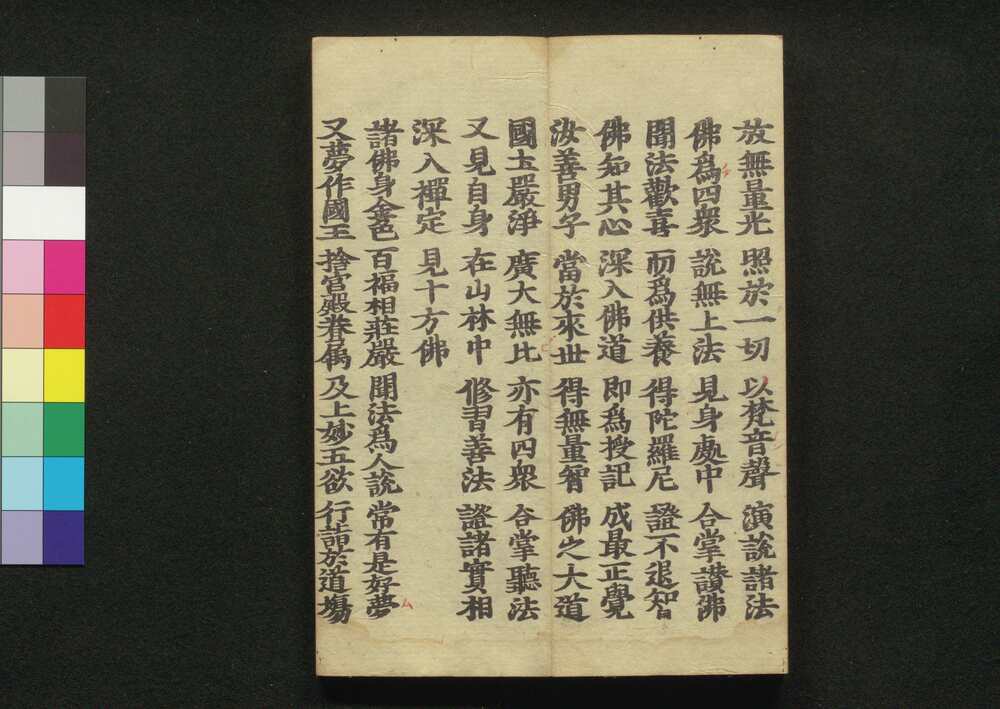 放無量光 照於一切 以梵音聲 演說諸法
佛為四衆 說無上法 見身處中 合掌讃佛
聞法歡喜 而為供養 得陀羅尼 證不退智
佛知其心 深入佛道 即為授記 成最正覺
汝善男子 當於來世 得無量智 佛之大道
國土嚴淨 廣大無比 亦有四衆 合掌聽法
又見自身 在山林中 修習善法 證諸實相
深入禪定 見十方佛
諸佛身金色 百福相莊嚴 聞法為人說 常有是好夢
又夢作國王 捨宮殿眷屬 及上妙五欲 行詣於道場